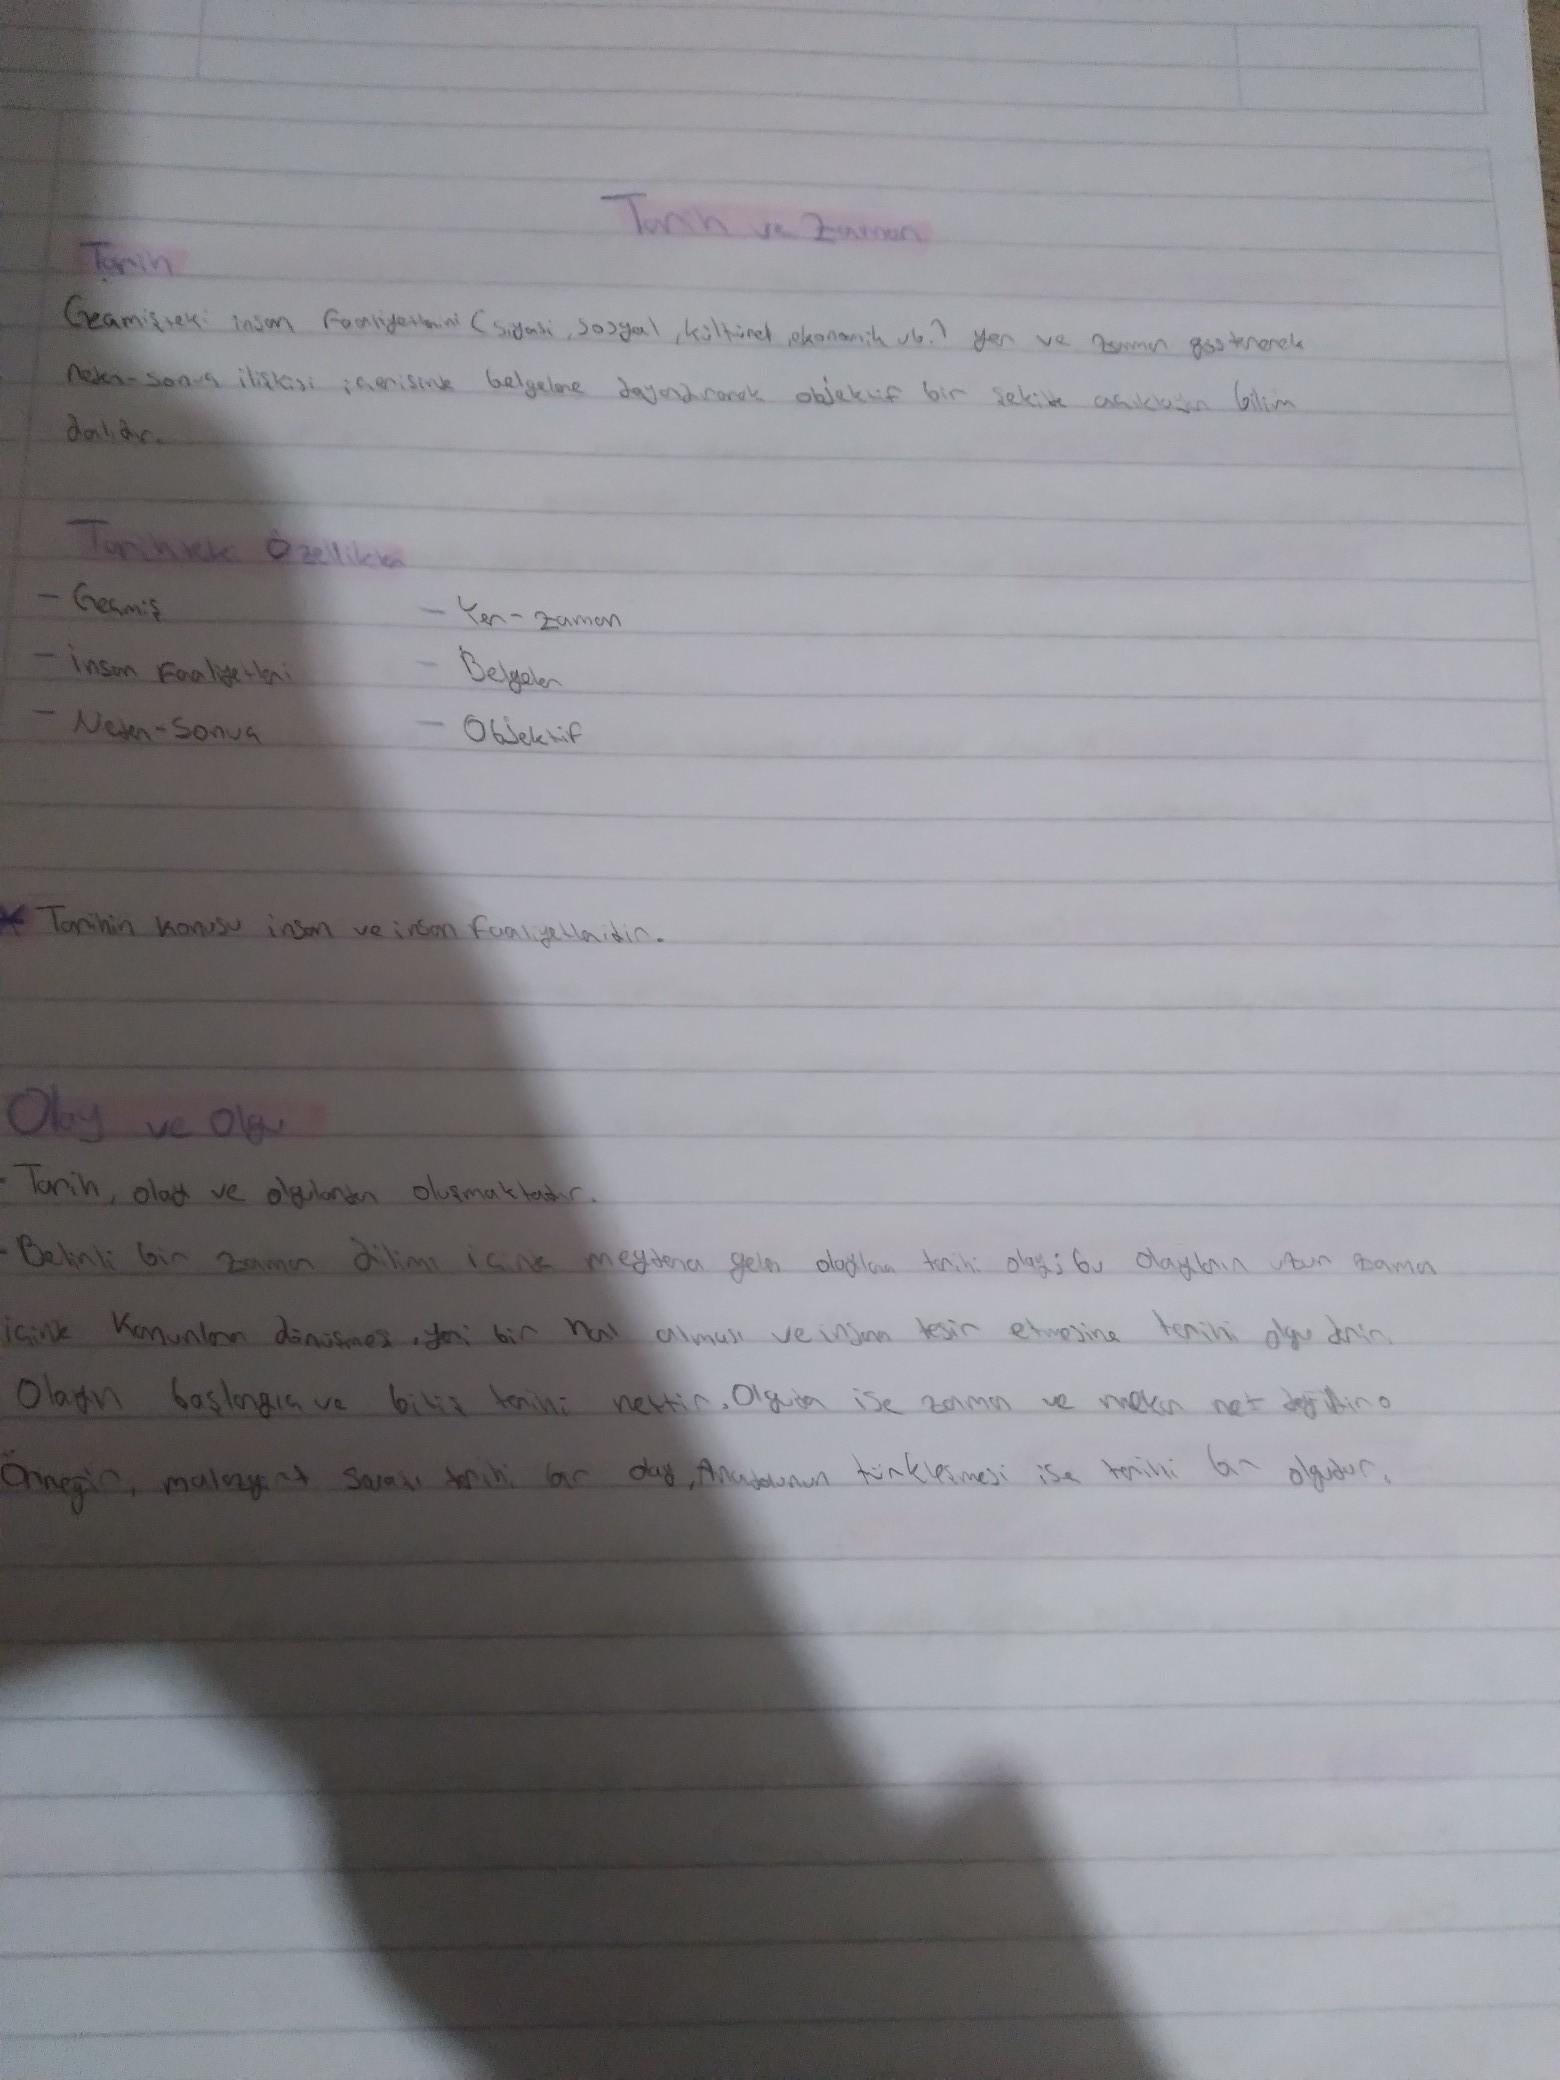 Tarih ve Zaman
Tarih
Geçmişteki insan Faaliyetlerini (siyasi, sosyal, kültürel, ekonomik vb.) yer ve zaman göstererek
neden-sonuç ilişkisi içerisinde belgelere dayandırarak objektif bir şekilde açıklayan bilim
dalıdır.
Tarihteki Özellikler
- Geçmiş - Yer-zaman
- insan Faaliyetleri - Belgeler
- Neden-Sonuç - Objektif
* Tarihin konusu insan ve insan faaliyetleridir.
Olay ve Olgu
- Tarih, olay ve olgulardan oluşmaktadır.
- Belirli bir zaman dilimi içinde meydana gelen olaylara tarihi olay; bu olayların uzun zaman
içinde kanunlara dönüşmesi, yeni bir hal alması ve insanı tesir etmesine tarihi olgu denir.
Olayın başlangıç ve bitiş tarihi nettir. Olguda ise zaman ve mekan net değildir.
Örneğin, malazgirt Savaşı tarihi bir olay, Anadolunun türkleşmesi ise tarihi bir olgudur.